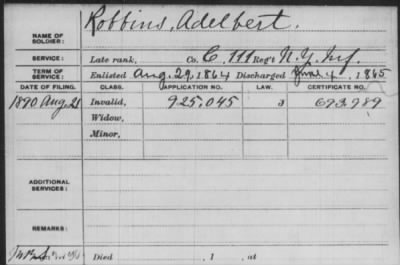 Robbins, Adelbert.
NAME OF SOLDIER:
SERVICE: Late rank, Co. C, 111 Reg't N.Y. Inf.
TERM OF SERVICE: Enlisted Aug. 29, 1864 Discharged June 4, 1865
DATE OF FILING. CLASS. APPLICATION NO. LAW. CERTIFICATE NO.
1890 Aug. 28 Invalid, 925,045 3 693,989
Widow,
Minor,
ADDITIONAL SERVICES:
REMARKS:
Died , 1 , at